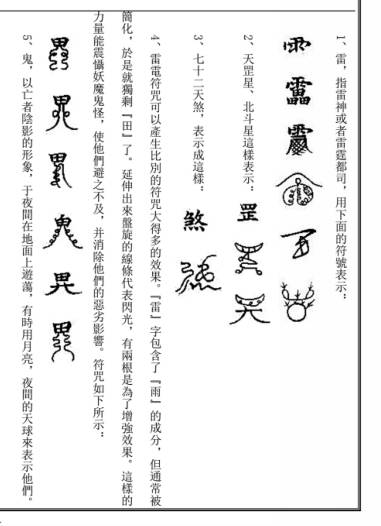 1、雷，指雷神或者雷霆都司，用下面的符號表示：
2、天罡星、北斗星這樣表示：罡
3、七十二天煞，表示成這樣：煞
4、雷電符咒可以產生比別的符咒大得多的效果。『雷』字包含了『雨』的成分，但通常被
簡化，於是就獨剩『田』了。延伸出來盤旋的線條代表閃光，有兩根是為了增強效果。這樣的
力量能震懾妖魔鬼怪，使他們避之不及，并消除他們的惡劣影響。符咒如下所示：
5、鬼，以亡者陰影的形象，于夜間在地面上遊蕩，有時用月亮，夜間的天球來表示他們。